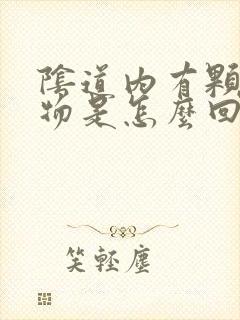 陰道內有顆
物是怎麼回
笑輕塵